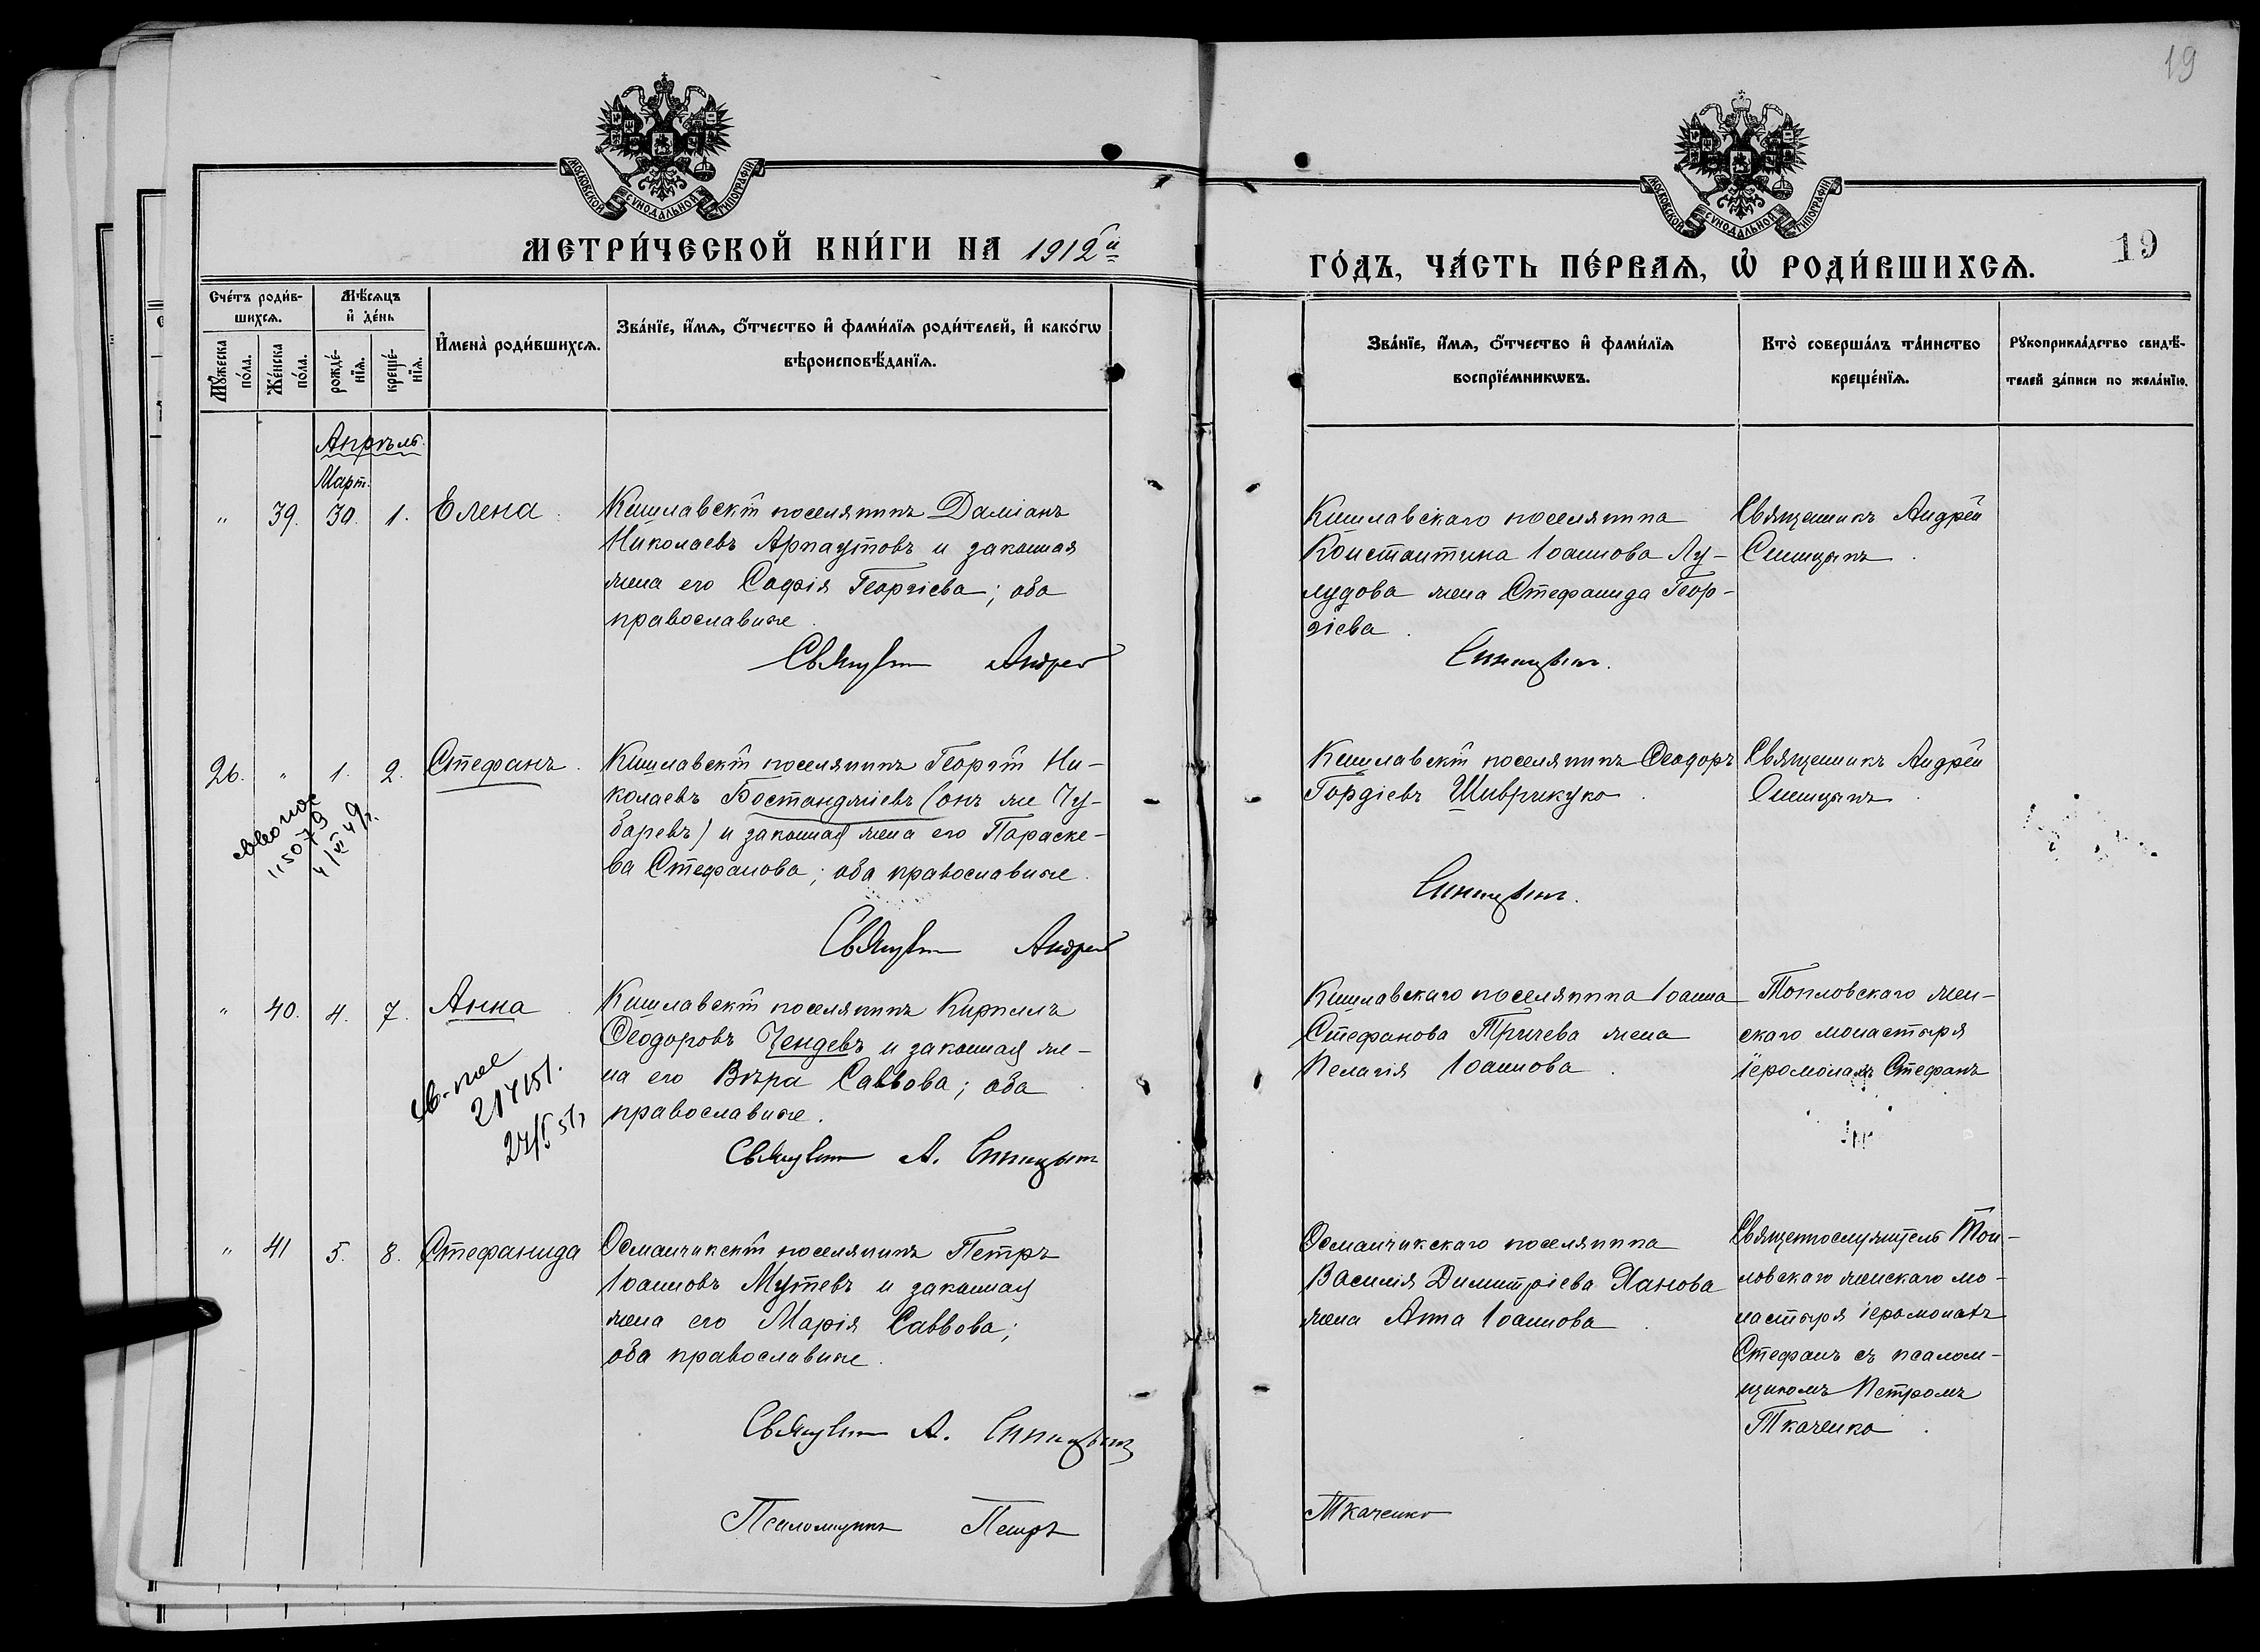 19
МОСКОВСКОЙ СѴНОДАЛЬНОЙ ТИПОГРАФІИ
МОСКОВСКОЙ СѴНОДАЛЬНОЙ ТИПОГРАФІИ
МЕТРИ́ЧЕСКОЙ КНИ́ГИ НА 1912й
ГО́ДЪ, ЧА́СТЬ ПЕ́РВАѦ, Ѡ҆ РОДИ́ВШИХСѦ.
19
Сче́тъ роди́в-
шихсѧ.
Мѣ́сѧцъ
и҆ де́нь
Мꙋ́жеска
по́ла.
Же́нска
по́ла.
рожде́-
нїѧ.
креще́-
нїѧ.
И҆мена̀ роди́вшихсѧ.
Зва́нїе, и҆́мѧ, ѻ҆́тчество и҆ фами́лїѧ роди́телей, и҆ како́гѡ
вѣроисповѣ́данїѧ.
Зва́нїе, и҆́мѧ, ѻ҆́тчество и҆ фами́лїѧ
воспрїе́мникѡвъ.
Кто̀ соверша́лъ та́инство
креще́нїѧ.
Рꙋкоприкла́дство свидѣ́-
телей за́писи по жела́нїю.
Апрѣль.
Март.
" 39. 30. 1. Елена.
Кишлавскій поселянинъ Даміанъ
Николаевъ Арнаутовъ и законная
жена его Софія Георгіева; оба
православные.
Священ Андрей
Кишлавскаго поселянина
Константина Іоаннова Лу-
лудова жена Стефанида Геор-
гіева.
Синицынъ.
Священникъ Андрей
Синицынъ.
26. " 1. 2. Стефанъ.
115079
4/VI 49г.
Кишлавскій поселянинъ Георгій Ни-
колаевъ Бостанджіевъ (онъ же Чу-
баревъ) и законная жена его Параске-
ва Стефанова; оба православные.
Священ Андрей
Кишлавскій поселянинъ Ѳеодоръ
Гордіевъ Шиврикуко.
Синицынъ.
Священникъ Андрей
Синицынъ.
" 40. 4. 7. Анна.
св-пое
Кишлавскій поселянинъ Кириллъ
Ѳеодоровъ Чендевъ и законная же-
на его Вѣра Саввова; оба
православные.
Священ А. Синицынъ
Кишлавскаго поселянина Іоанна
Стефанова Тричева жена
Пелагія Іоаннова.
Топловскаго жен-
скаго монастыря
іеромонахъ Стефанъ
" 41 5. 8. Стефанида
Османчикскій поселянинъ Петръ
Іоанновъ Мутевъ и законная
жена его Марія Саввова;
оба православные.
Священ А. Синицынъ
Псаломщикъ Петръ
Османчикскаго поселянина
Василія Димитріева Янова
жена Анна Іоаннова.
Ткаченко
Священнослужитель Топ-
ловскаго женскаго мо-
настыря іеромонахъ
Стефанъ съ псалом-
щикомъ Петромъ
Ткаченко.